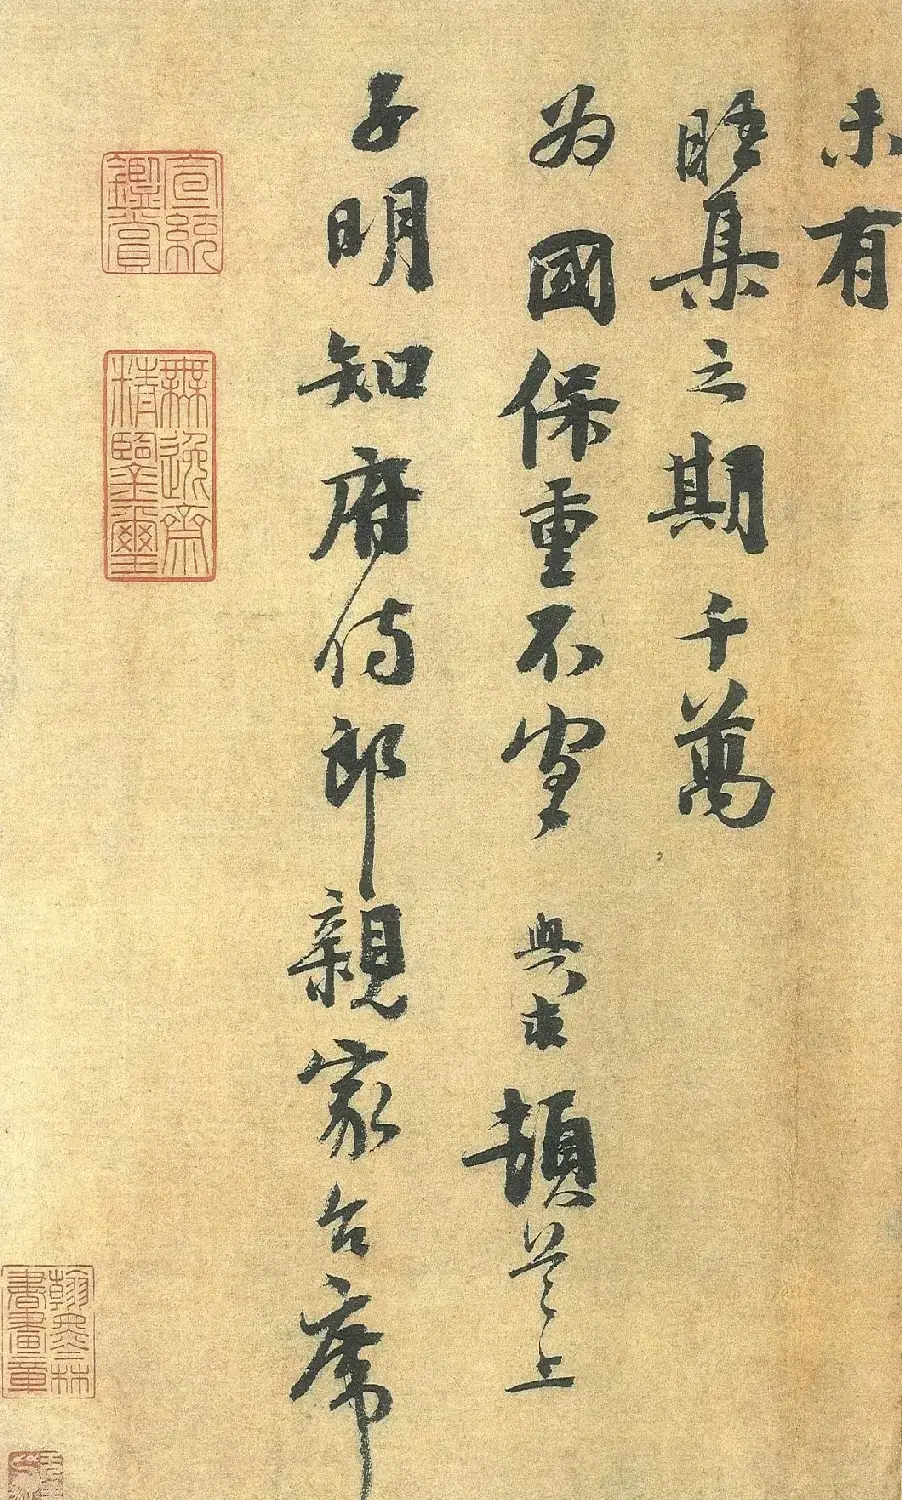 未有
晤集之期千萬
為國保重不宣 與求頓首上
子明知府侍郎親家台席
宣統鑑賞
無逸齋精鑒璽
翰墨林書畫章